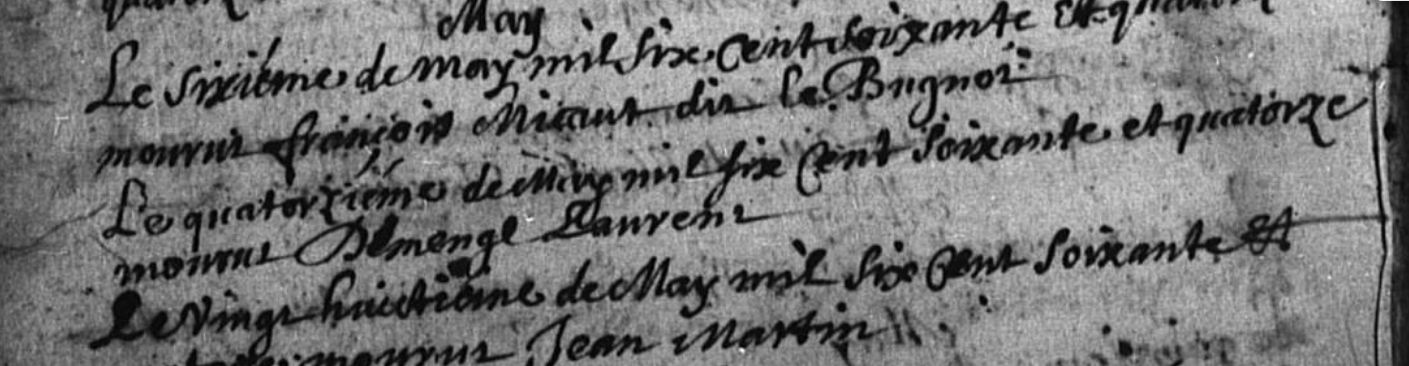 May
Le sixiéme de may mil six cent soixante et quatorze
mourut françois Micaut dit le Bugnoi
Le quatorziéme de May mil six cent soixante et quatorze
mourut Demenge Laurent
Le vingt huictiéme de May mil six cent soixante et
mourut Jean Martin